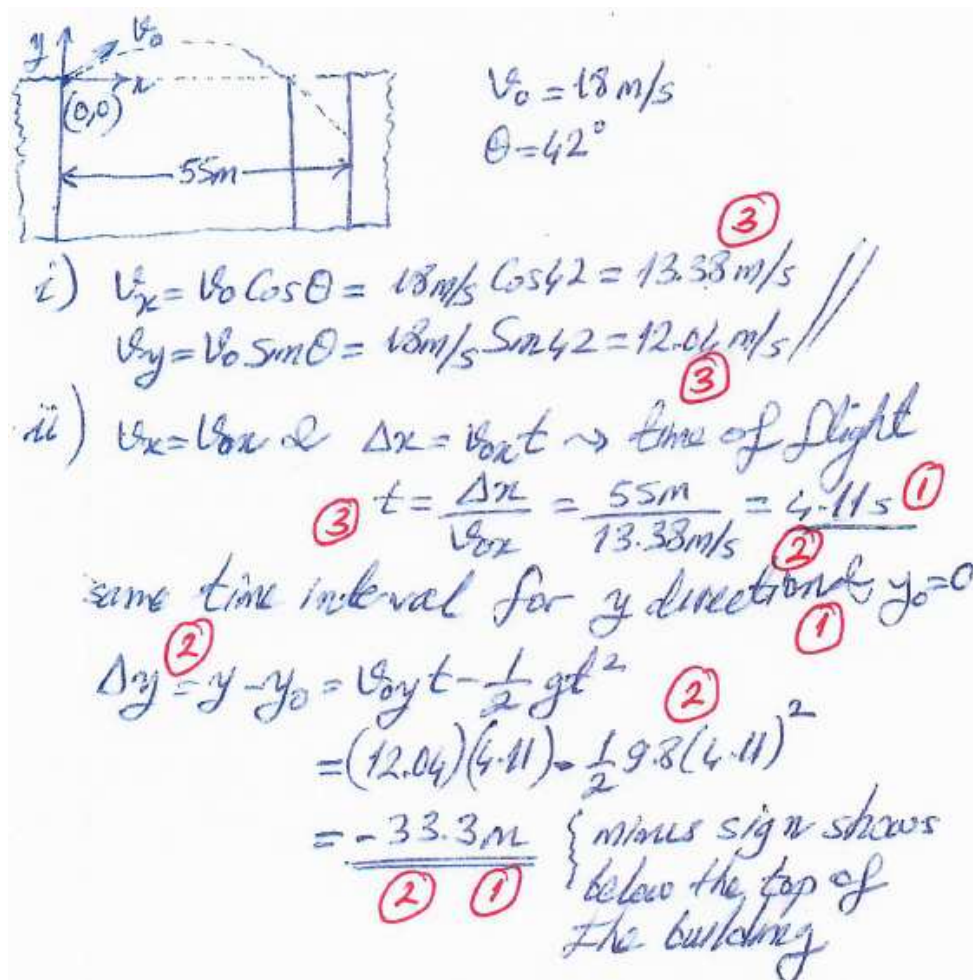 y v₀
x
(0,0)
55m
v₀ = 18 m/s
θ = 42°
③
i) vₓ = v₀ Cos θ = 18m/s Cos42 = 13.38m/s //
vy = v₀ Sin θ = 18m/s Sin42 = 12.04 m/s
③
ii) vₓ = v₀ₓ & Δx = v₀ₓt → time of flight
③ t = Δx / v₀ₓ = 55m / 13.38m/s = 4.11s ①
②
same time interval for y direction & y₀ = 0
① 
②
Δy = y - y₀ = v₀yt - 1/2 gt²
②
= (12.04)(4.11) - 1/2 9.8(4.11)²
= -33.3m { minus sign shows
② ① below the top of
the building